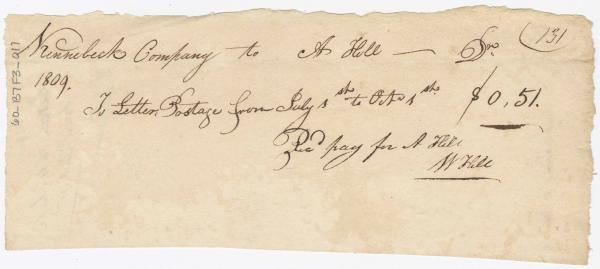 131
Kennebeck Company to A Hill — Dr.
1809.
To Letter Postage from July 1st to Octr 1st. $0,51.
Recd pay for A Hill
W Hill
60-B7F3-017